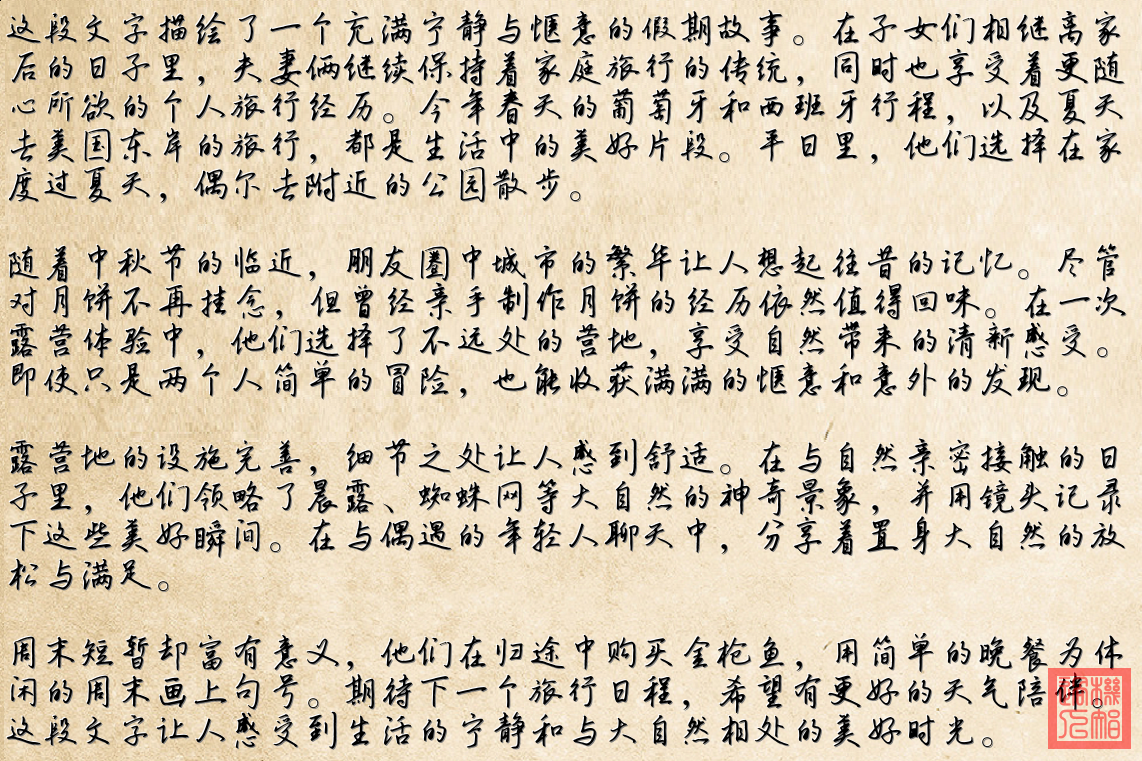 这段文字描绘了一个充满宁静与惬意的假期故事。在子女们相继离家
后的日子里，夫妻俩继续保持着家庭旅行的传统，同时也享受着更随
心所欲的个人旅行经历。今年春天的葡萄牙和西班牙行程，以及夏天
去美国东岸的旅行，都是生活中的美好片段。平日里，他们选择在家
度过夏天，偶尔去附近的公园散步。
随着中秋节的临近，朋友圈中城市的繁华让人想起往昔的记忆。尽管
对月饼不再挂念，但曾经亲手制作月饼的经历依然值得回味。在一次
露营体验中，他们选择了不远处的营地，享受自然带来的清新感受。
即使只是两个人简单的冒险，也能收获满满的惬意和意外的发现。
露营地的设施完善，细节之处让人感到舒适。在与自然亲密接触的日
子里，他们领略了晨露、蜘蛛网等大自然的神奇景象，并用镜头记录
下这些美好瞬间。在与偶遇的年轻人聊天中，分享着置身大自然的放
松与满足。
周末短暂却富有意义，他们在归途中购买金枪鱼，用简单的晚餐为休
闲的周末画上句号。期待下一个旅行日程，希望有更好的天气陪伴。
这段文字让人感受到生活的宁静和与大自然相处的美好时光。